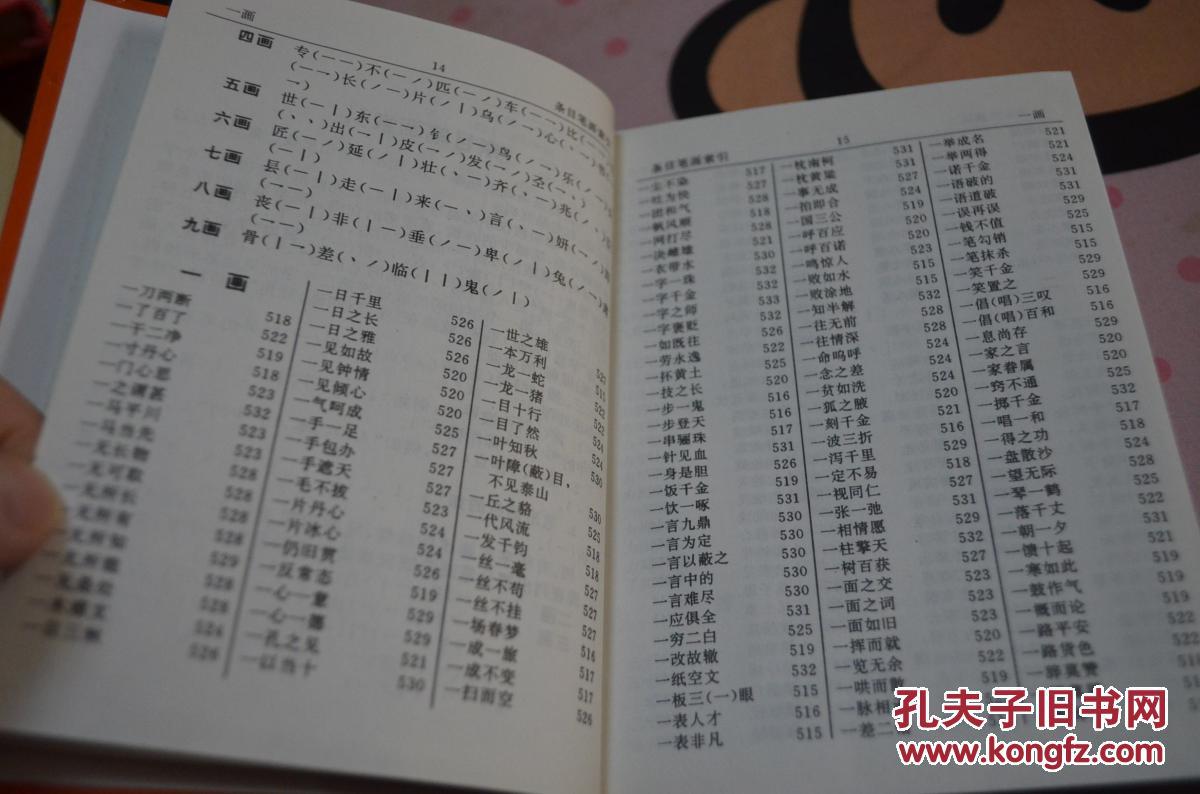 一画 14 条目笔画索引
四画 专(一一)不(一ノ)匹(一ノ)车(一一)比
(一一)长(ノ一)片(ノ丨)乌(ノ一)心(、一)
五画 世(一丨)东(一一)钅(ノ一)鸟(ノ一)乐(ノ一)
(、、)出(一丨)皮(一ノ)发(一ノ)圣(一、)
六画 匠(一ノ)延(ノ丨)壮(、一)齐(、一)兆(ノ、)
七画 县(丨一)走(一丨)来(一、)言(、一)妍(一ノ)
八画 丧(一丨)非(丨一)垂(ノ一)卑(ノ丨)兔(ノ一)
九画 骨(丨一)差(、ノ)临(丨丨)鬼(ノ丨)
一画
一刀两断 518
一了百了 522
一干二净 519
一寸丹心 518
一门心思 523
一之谓甚 532
一马平川 523
一马当先 523
一无长物 528
一无可取
一无所长 528
一无所有 528
一无所知
一无所能
一日三秋 526
一日千里 526
一日之长 526
一日之雅 526
一见如故 520
一见钟情 520
一见倾心 520
一气呵成 525
一手一足 527
一手包办 527
一手遮天 527
一毛不拔 523
一片丹心 524
一片冰心 524
一仍旧贯 526
一反常态 519
一心一意 529
一心一德 529
一孔之见 521
一以当十 530
一世之雄 527
一本万利 515
一龙一蛇 522
一龙一猪 522
一目十行 524
一目了然 524
一叶知秋 530
一叶障(蔽)目,
不见泰山 530
一丘之貉 525
一代风流 518
一发千钧 518
一丝一毫 527
一丝不苟 527
一丝不挂 527
一场春梦 516
一成一旅 517
一成不变 517
一扫而空 526
条目笔画索引 15 一画
一尘不染 517
一吐为快 527
一团和气 528
一帆风顺 518
一网打尽 528
一决雌雄 521
一衣带水 530
一字一珠 532
一字千金 532
一字之师 533
一字褒贬 532
一如既往 526
一劳永逸 522
一抔黄土 525
一技之长 520
一步一鬼 516
一步登天 516
一串骊珠 517
一针见血 531
一身是胆 526
一饭千金 519
一饮一啄 531
一言九鼎 530
一言为定 530
一言以蔽之 530
一言中的 530
一言难尽 530
一应俱全 531
一穷二白 525
一改故辙 519
一纸空文 532
一板三(一)眼 515
一表人才 516
一表非凡 515
一枕南柯 531
一枕黄粱 531
一事无成 527
一拍即合 524
一国三公 519
一呼百应 520
一呼百诺 520
一鸣惊人 523
一败如水 515
一败涂地 515
一知半解 532
一往无前 528
一往情深 528
一命呜呼 524
一念之差 524
一贫如洗 525
一狐之腋 520
一刻千金 521
一波三折 516
一泻千里 529
一定不易 518
一视同仁 527
一张一弛 531
一相情愿 529
一柱擎天 532
一树百获 527
一面之交 523
一面之词 523
一面如旧 523
一挥而就 520
一览无余 522
一哄而散 519
一脉相
一差二
一举成名 521
一举两得 521
一诺千金 524
一语破的 531
一语道破 531
一误再误 529
一钱不值 525
一笔勾销 515
一笔抹杀 515
一笑千金 529
一笑置之 529
一倡(唱)三叹 516
一倡(唱)百和 516
一息尚存 529
一家之言 520
一家眷属 520
一窍不通 525
一掷千金 532
一唱一和 517
一得之功 518
一盘散沙 524
一望无际 528
一琴一鹤 525
一落千丈 522
一朝一夕 531
一馈十起
一寒如此 519
一鼓作气 519
一概而论 519
一路平安 522
一路货色 522
一辞莫赞
孔夫子旧书网
www.kongfz.com